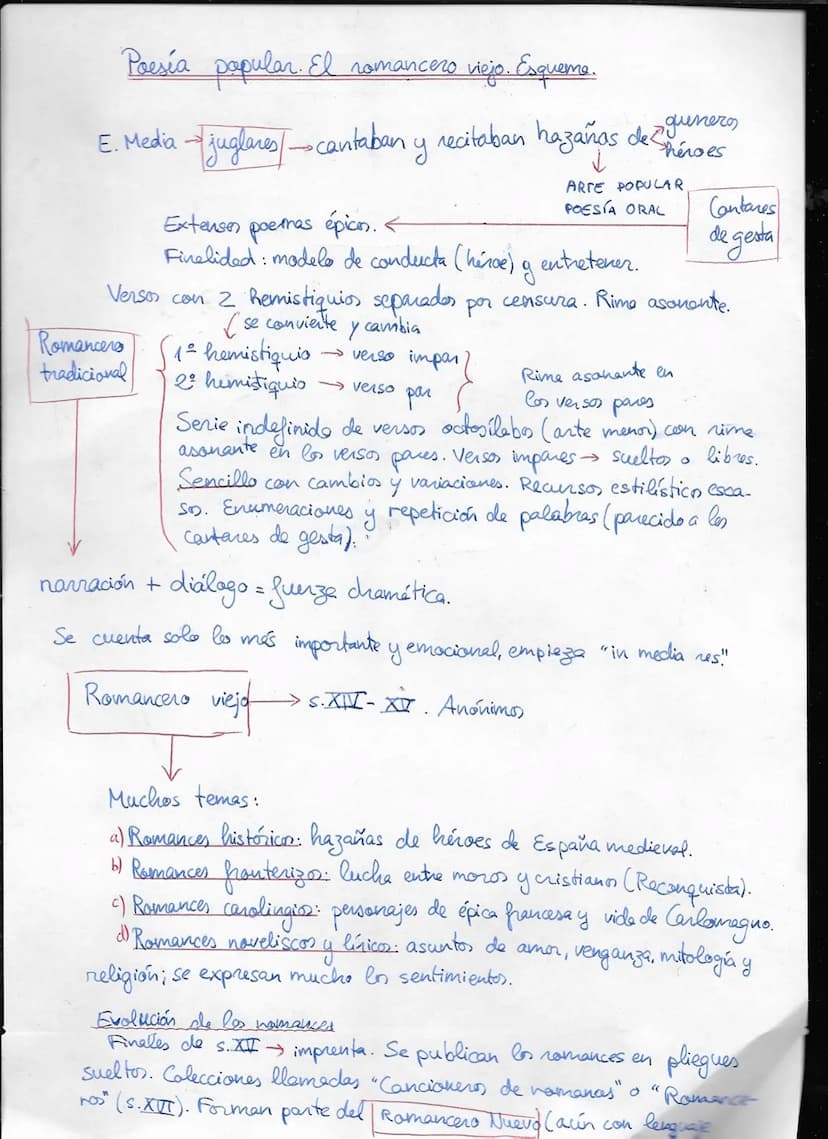 Poesía popular. El romancero viejo. Esquema.
E. Media → juglares → cantaban y recitaban hazañas de guerreros
héroes
ARTE POPULAR
POESÍA ORAL
Cantares
de gesta
Extensos poemas épicos.
Finalidad: modelo de conducta (héroe) y entretener.
Versos con 2 hemistiquios separados por censura. Rima asonante.
se convierte y cambia
Romancero
tradicional
1º hemistiquio → verso impar
2º hemistiquio → verso par
Rima asonante en
los versos pares
Serie indefinida de versos octosílabos (arte menor) con rima
asonante en los versos pares. Versos impares → sueltos o libres.
Sencillo con cambios y variaciones. Recursos estilístico esca-
sos. Enumeraciones y repetición de palabras (parecido a los
cantares de gesta).
narración + diálogo = fuerza dramática.
Se cuenta solo lo más importante y emocional, empieza "in media res."
Romancero viejo → s.XIV - XV. Anónimos
Muchos temas:
a) Romances históricos: hazañas de héroes de España medieval.
b) Romances fronterizos: lucha entre moros y cristianos (Reconquista).
c) Romances carolingios: personajes de épica francesa y vida de Carlomagno.
d) Romances noveliscos y líricos: asuntos de amor, venganza, mitología y
religión; se expresan mucho los sentimientos.
Evolución de los romances
Finales de s.XV → imprenta. Se publican los romances en pliegues
sueltos. Colecciones llamadas "Cancioneros de romanas" o "Romance-
ros" (s.XVI). Forman parte del Romancero Nuevo (aún con lenguaje